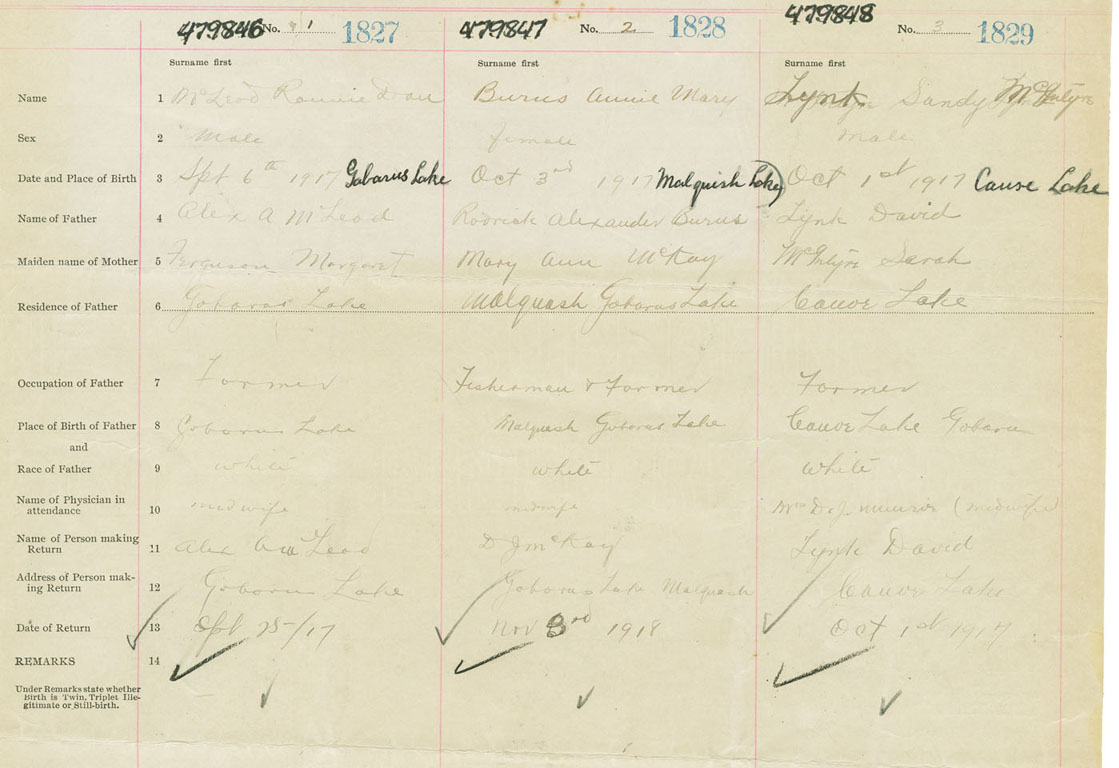 479846 No. 1 1827 479847 No. 2 1828 479848 No. 3 1829
Surname first Surname first Surname first
Name 1 McLeod Ronnie Burns Annie Mary Lynk Sandy McIntyre
Sex 2 Male female male
Date and Place of Birth 3 Spt 6th 1917 Gabarus Lake Oct 3rd 1917 Malquish Lake) Oct 1st 1917 Canoe Lake
Name of Father 4 Alex A McLeod Rodrick Alexander Burns Lynk David
Maiden name of Mother 5 Ferguson Margaret Mary Ann McKay McIntyre Sarah
Residence of Father 6 Gobarus Lake Malquash Gobarus Lake Canoe Lake
Occupation of Father 7 Former Fisherman & Former Former
Place of Birth of Father 8 Goborus Lake Malquash Goborus Lake Canoe Lake Goborus
and
Race of Father 9 white white white
Name of Physician in
attendance 10 midwife midwife Mrs D. J. Munroe (midwife)
Name of Person making
Return 11 Alex A McLeod D J McKay Lynk David
Address of Person mak-
ing Return 12 Goborus Lake Goborus Lake Malquash Canoe Lake
Date of Return 13 Spt 25/17 Nov 3rd 1918 Oct 1st 1917
REMARKS 14
Under Remarks state whether
Birth is Twin, Triplet Ille-
gitimate or Still-birth.